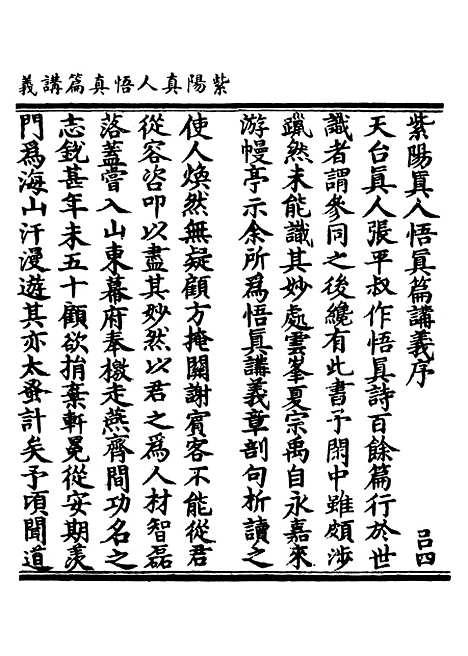 紫陽真人悟真篇講義
紫陽真人悟真篇講義序
呂四
天台真人張平叔作悟真詩百餘篇行於世
識者謂參同之後纔有此書予閑中雖頗涉
躐然未能識其妙處雲峯夏宗禹自永嘉來
游幔亭示余所爲悟真講義章剖句析讀之
使人煥然無疑顧方掩關謝賓客不能從君
從容咨叩以盡其妙然以君之爲人材智磊
落蓋嘗入山東幕府奉檄走燕齊間功名之
志銳甚年未五十顧欲捐棄軒冕從安期羨
門爲海山汗漫遊其亦太蚤計矣予頃聞道